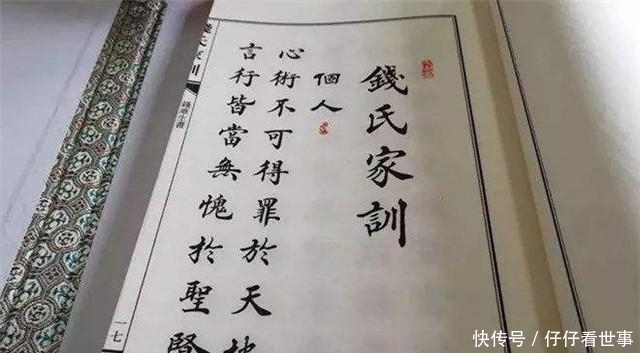 錢氏家訓
個人
心術不可得罪於天地
言行皆當無愧於聖賢
錢氏家訓
一七
快传号 / 仔仔看世事